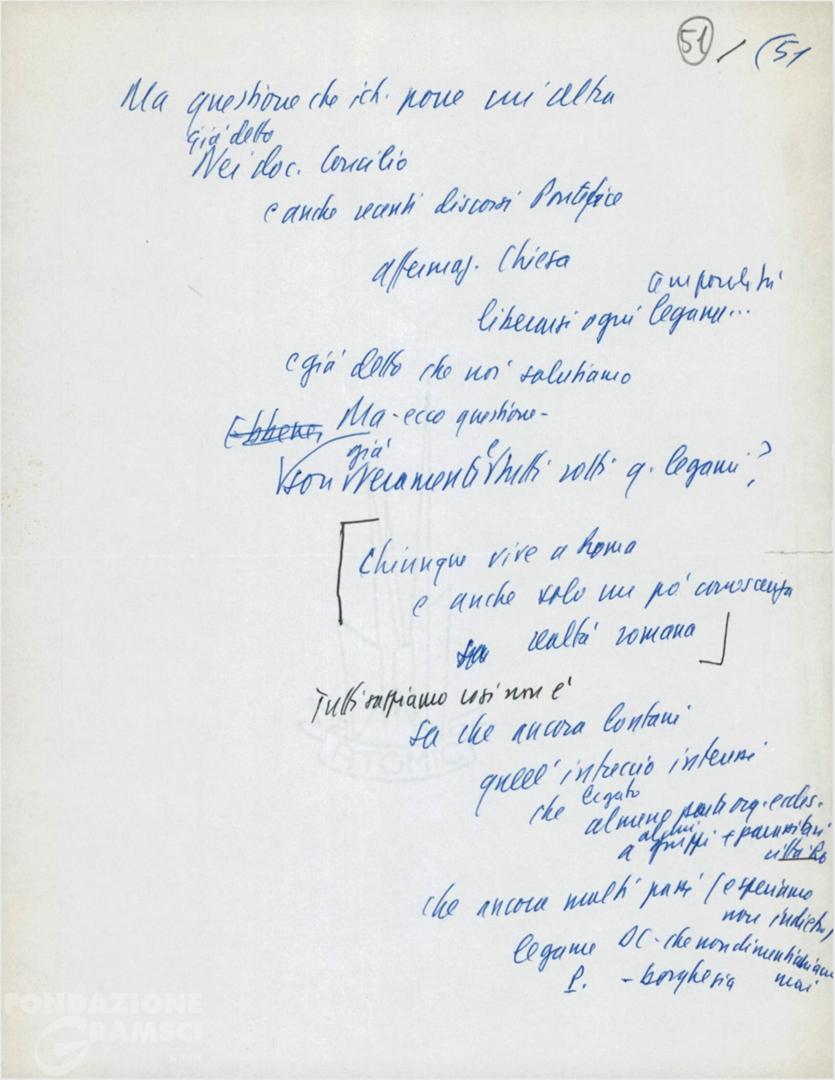 51 / (51
Ma questione che ich. pone un'altra
già detto
Nei doc. Concilio
e anche recenti discorsi Pontefice
affermaz. Chiesa
temporalità
liberarsi ogni legame...
e già detto che noi salutiamo
Ebbene, Ma - ecco questione -
già
son veramente tutti rotti q. legami?
Chiunque vive a Roma
e anche solo un po' conoscenza
realtà romana
Tutti sappiamo così non è
sa che ancora lontani
quell'intreccio interessi
che legato
almeno parti org. eccles.
alcuni
a gruppi + parassitari
città Ro
che ancora molti passi (e speriamo
non indietro)
legame DC - che non dimentichiamo
mai
P. - borghesia
FONDAZIONE
GRAMSCI